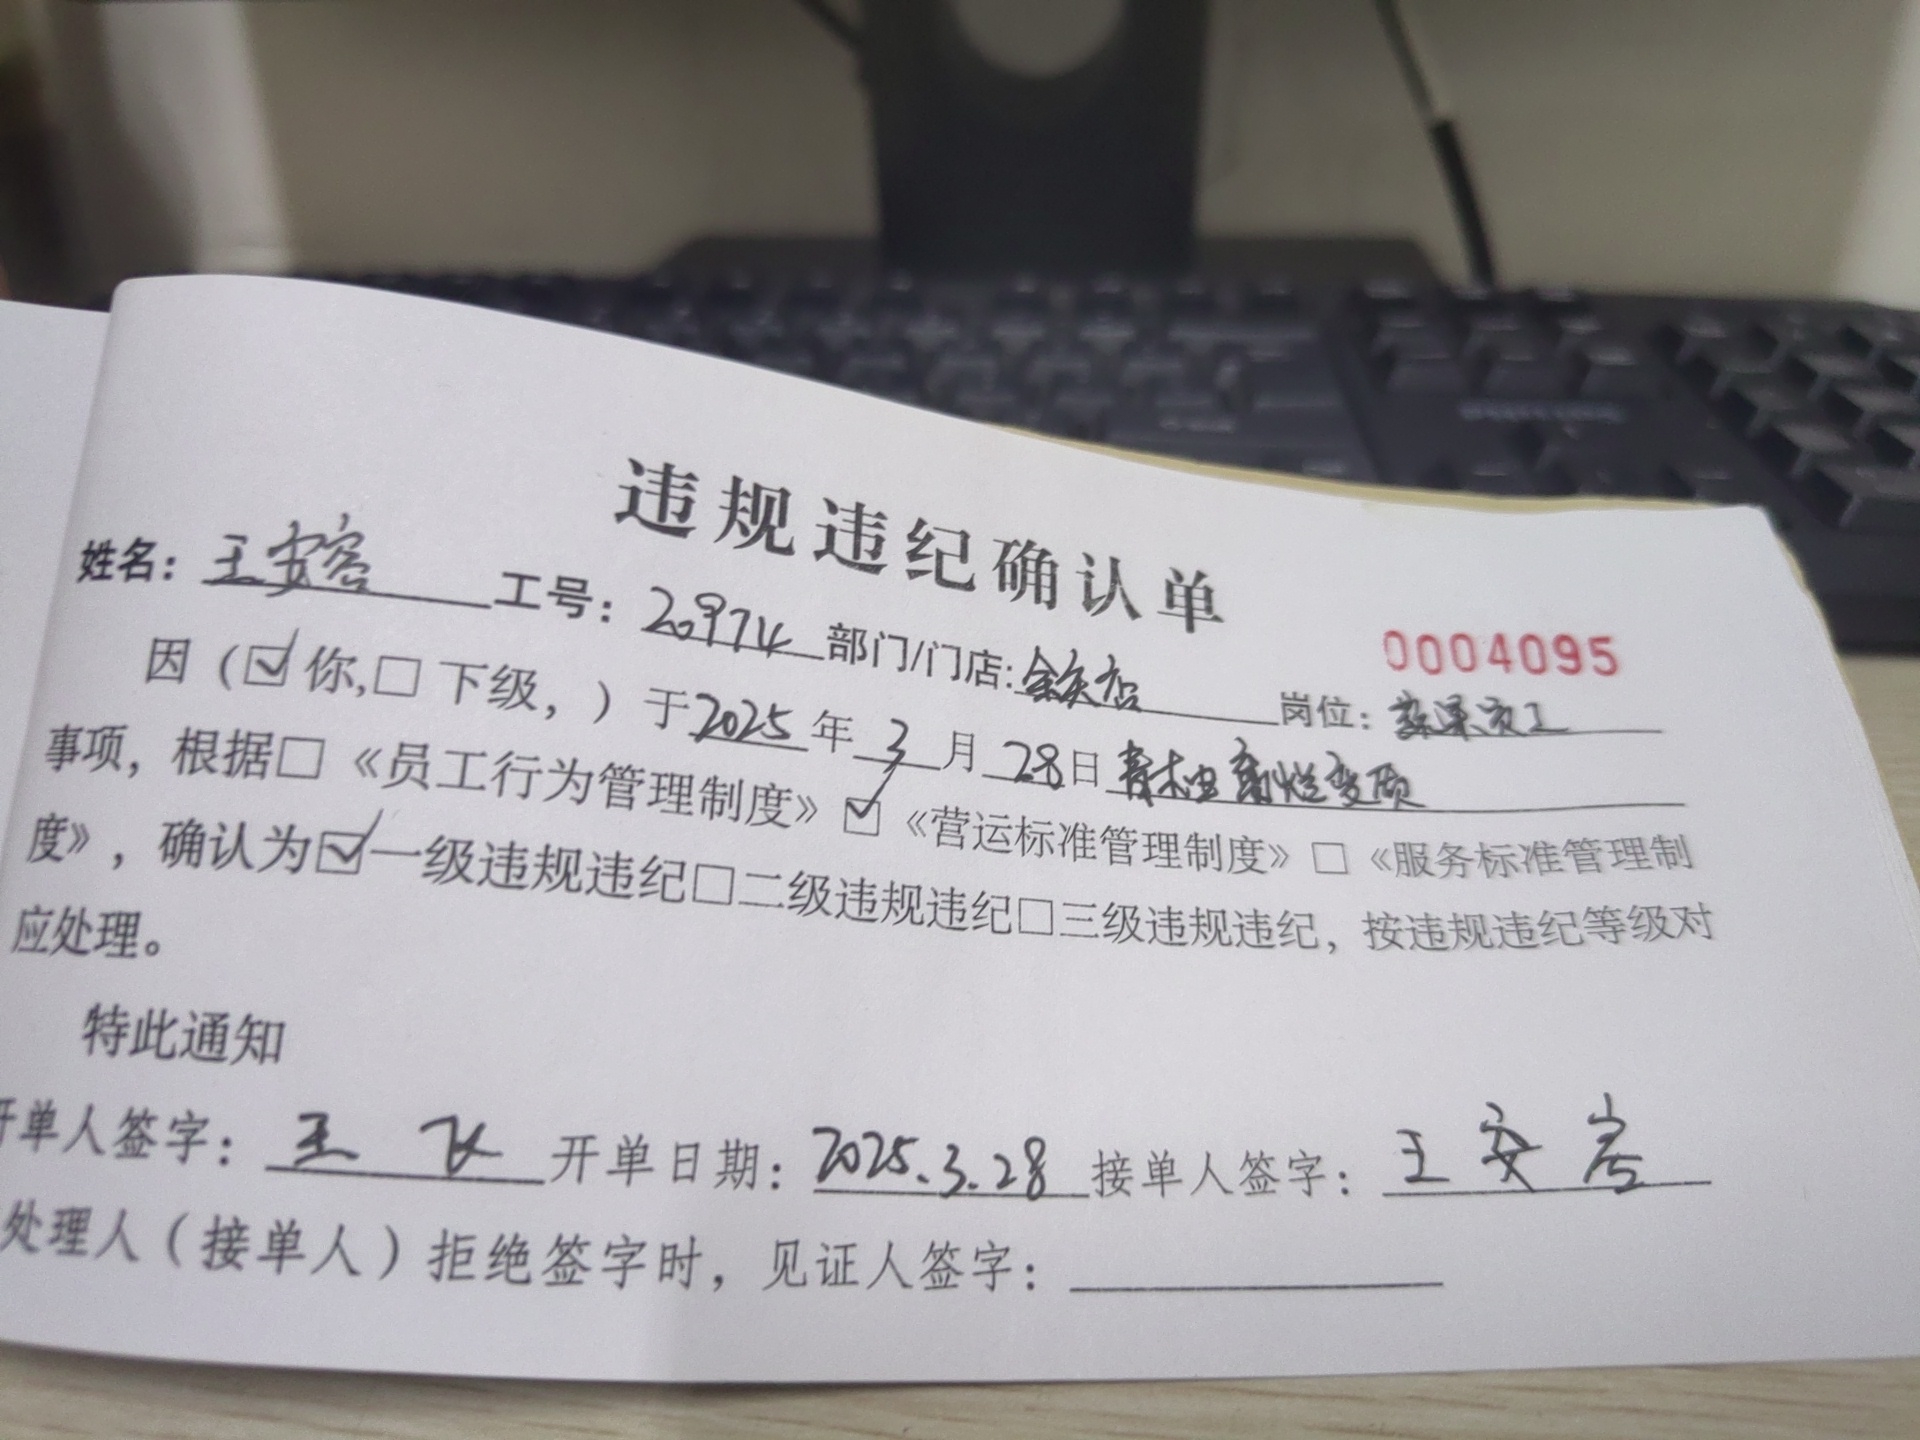 违规违纪确认单
0004095
姓名：王安容 工号：20974 部门/门店: 岗位：蔬果员工
因（☑你,☐下级，）于2025年3月28日青柚腐烂变质
事项，根据☐《员工行为管理制度》☑《营运标准管理制度》☐《服务标准管理制
度》，确认为☑一级违规违纪☐二级违规违纪☐三级违规违纪，按违规违纪等级对
应处理。
特此通知
开单人签字：王飞 开单日期：2025.3.28 接单人签字：王安容
处理人（接单人）拒绝签字时，见证人签字：